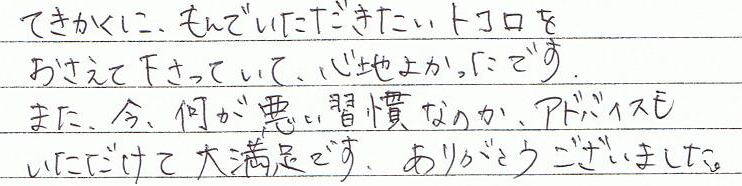 てきかくに、もんでいただきたいトコロを
おさえて下さっていて、心地よかったです.
また、今、何が悪い習慣なのか、アドバイスも
いただけて大満足です. ありがとうございました。